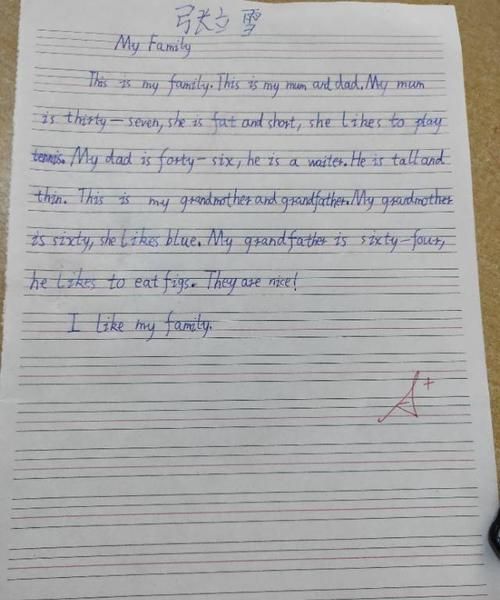 张立雪
My Family
This is my family. This is my mum and dad. My mum
is thirty-seven, she is fat and short, she likes to play
tennis. My dad is forty-six, he is a waiter. He is tall and
thin. This is my grandmother and grandfather. My grandmother
is sixty, she likes blue. My grandfather is sixty-four,
he likes to eat figs. They are nice!
I like my family.
A+